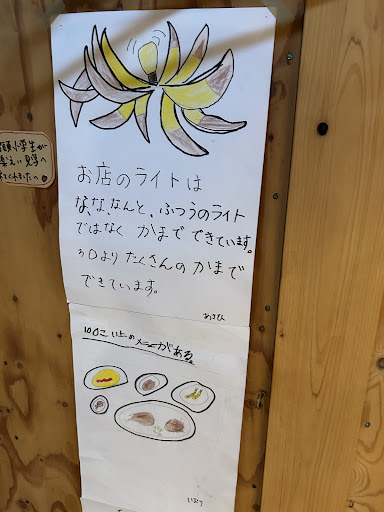 お店のライトは
な、な、なんと、ふつうのライト
ではなく かまで できています。
30より たくさんの かまで
できています。
あさひ
100こ以上のメニューがある。
小学生が
見学へ